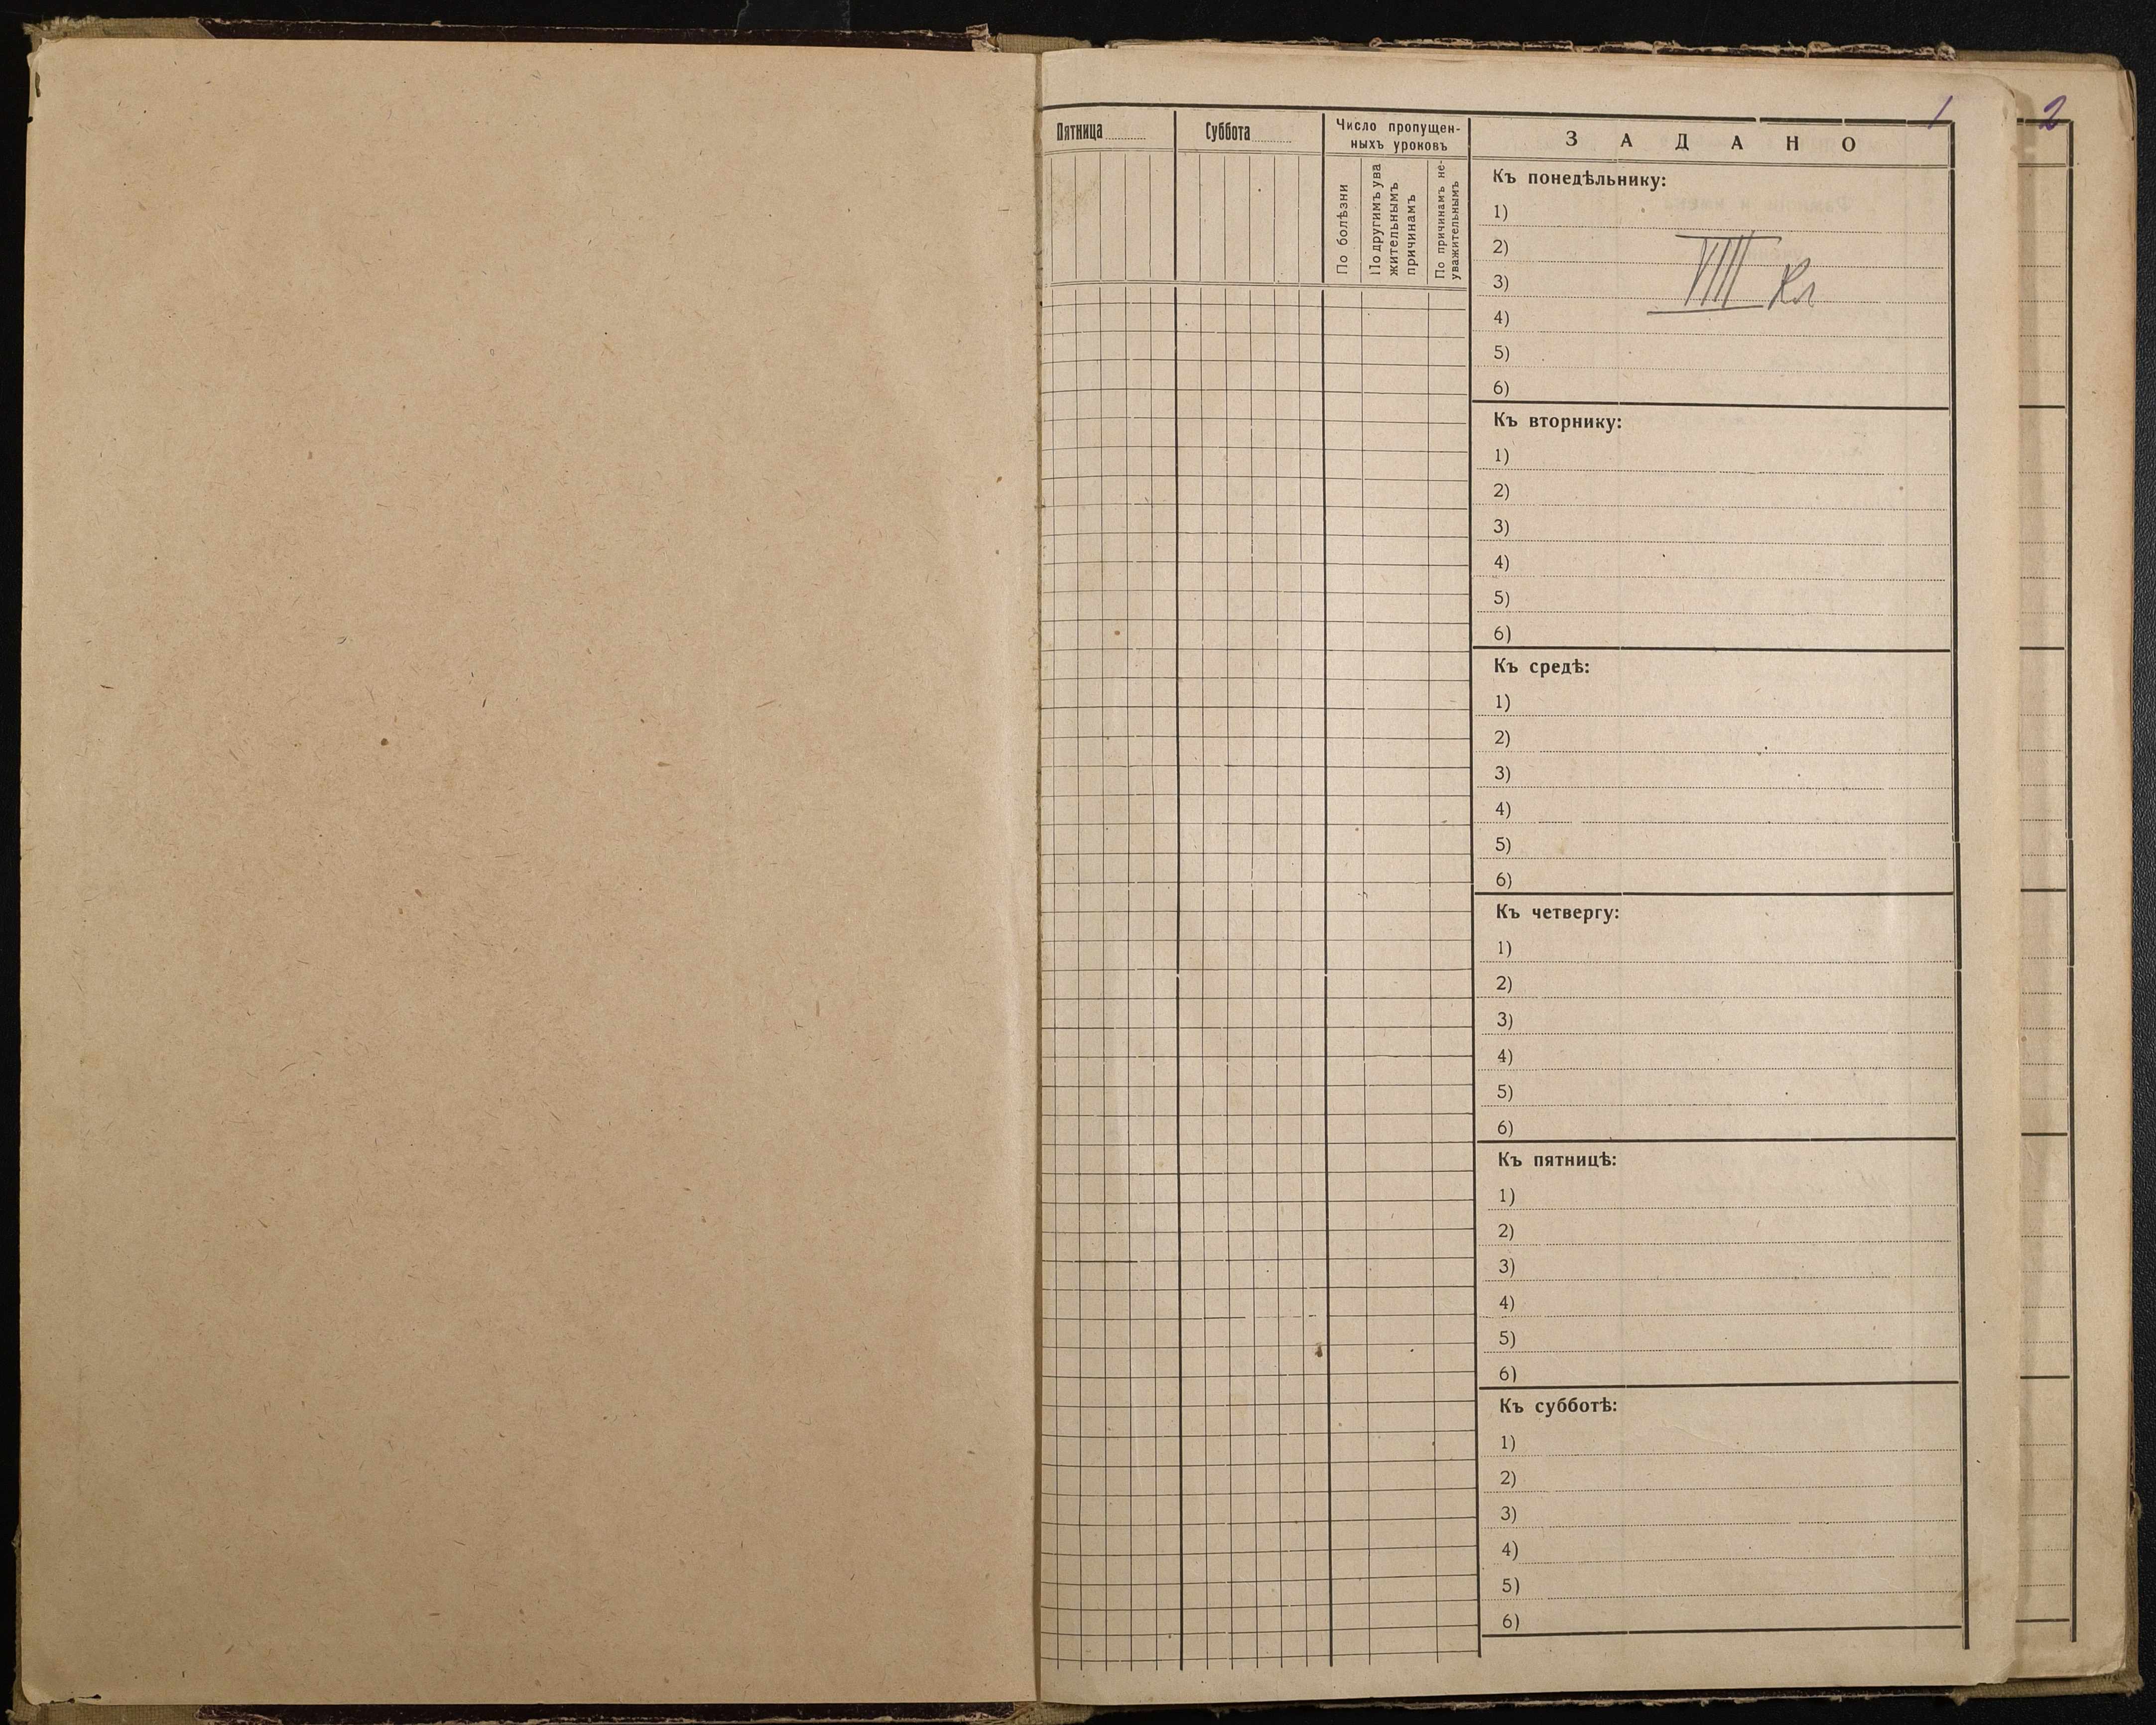 1
2
Пятница
Суббота
Число пропущен-
ныхъ уроковъ
По болѣзни
По другимъ ува
жительнымъ
причинамъ
По причинамъ не-
уважительнымъ
ЗАДАНО
Къ понедѣльнику:
1)
2)
VIII Кл
3)
4)
5)
6)
Къ вторнику:
1)
2)
3)
4)
5)
6)
Къ средѣ:
1)
2)
3)
4)
5)
6)
Къ четвергу:
1)
2)
3)
4)
5)
6)
Къ пятницѣ:
1)
2)
3)
4)
5)
6)
Къ субботѣ:
1)
2)
3)
4)
5)
6)